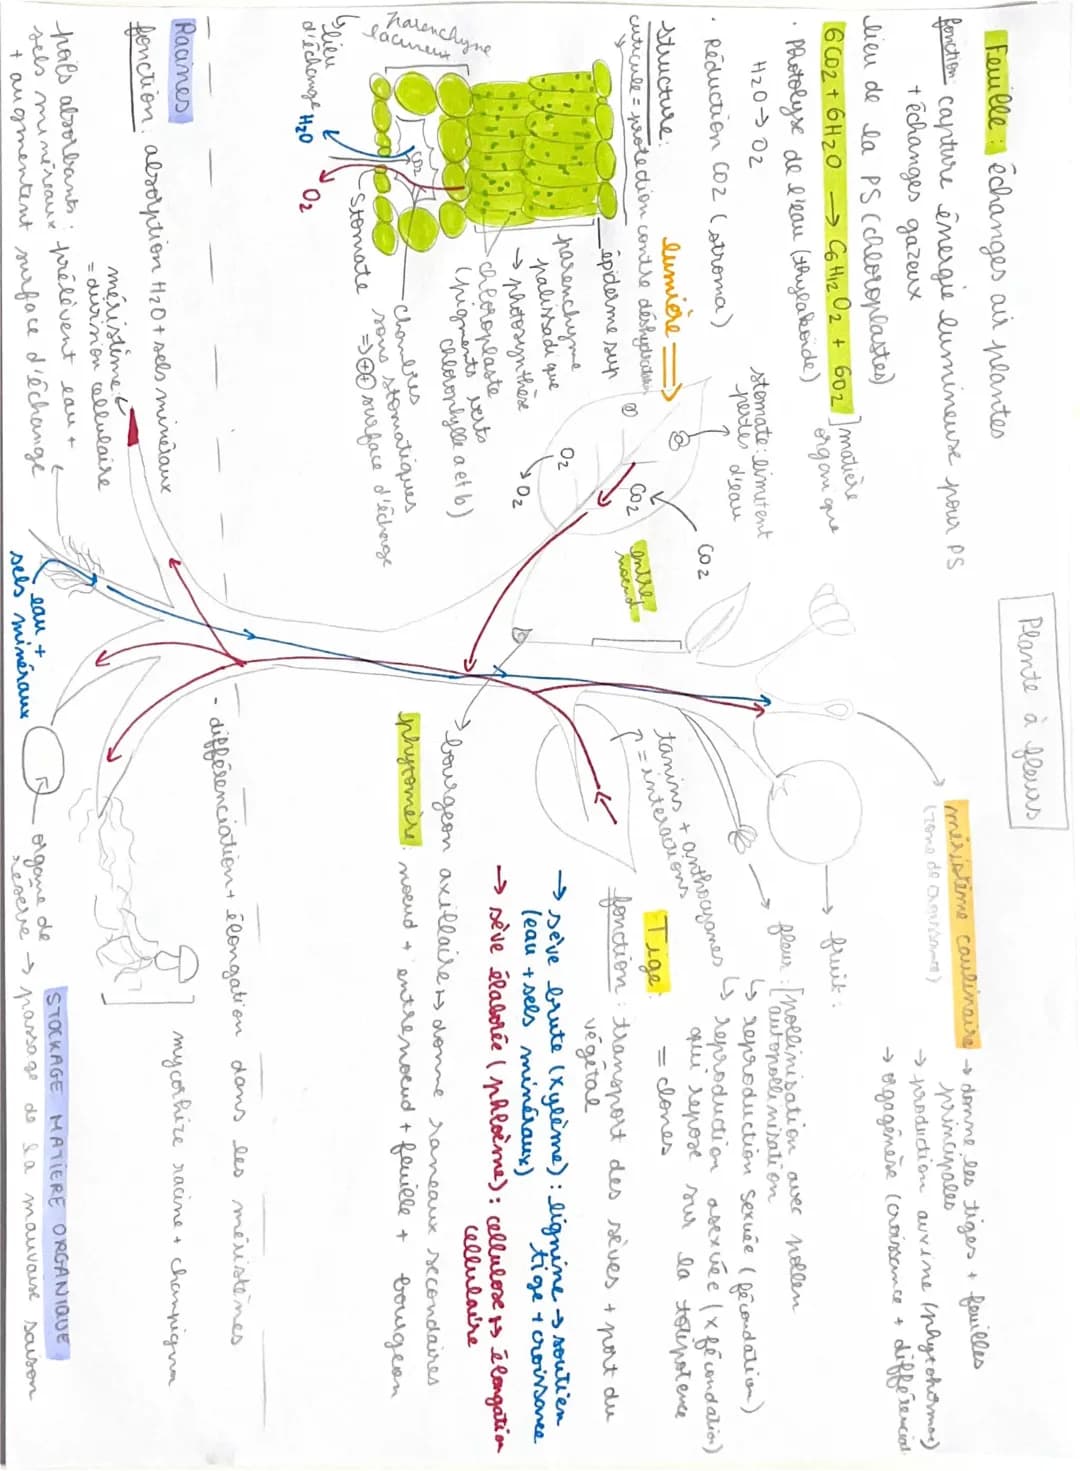 Plante à fleurs
Feuille : échanges air plantes
fonction : capture énergie lumineuse pour PS
+ échanges gazeux
lieu de la PS (chloroplastes)
6CO2 + 6H2O → C6H12O2 + 6O2 ] matière
organique
· Photolyse de l'eau (thylakoïde)
H2O → O2
· Réduction CO2 (stroma)
structure :
cuticule = protection contre déshydratation
épiderme sup
parenchyme
palissadique
→ photosynthèse
chloroplaste
(pigments verts
chlorophylle a et b)
chambres
sous stomatiques
⇒ ++ surface d'échange
stomate
parenchyme
lacuneux
↳ lieu
d'échange
H2O
O2
CO2
lumière ⇒
stomate : limitent
pertes d'eau
CO2
CO2
O2
O2
entre
noeud
méristème caulinaire → donne les tiges + feuilles
(zone de croissance)
principales
→ production auxine (phytohormone)
→ orgagénèse (croissance + différenciat
→ fruit :
→ fleur : [ pollinisation avec pollen
autopollinisation
↳ reproduction sexuée (fécondation)
↳ reproduction asexuée (x fécondation)
qui repose sur la totipotence
= clones
tanins + anthocyanes
= interactions
Tige :
fonction : transport des sèves + port du
végétal
→ sève brute (xylème) : lignine → soutien
(eau + sels minéraux) tige + croissance
→ sève élaborée (phloème) : cellulose ↦ élongation
cellulaire
bourgeon axillaire ↦ donne rameaux secondaires
phytomère : noeud + entrenoeud + feuille + bourgeon
Racines
fonction : absorption H2O + sels minéraux
méristème :
= division cellulaire
poils absorbants : prélèvent eau +
sels minéraux
+ augmentent surface d'échange
eau +
sels minéraux
- différenciation + élongation dans les méristèmes
mycorhize racine + champignon
STOCKAGE MATIERE ORGANIQUE
organe de
réserve → passage de la mauvaise saison